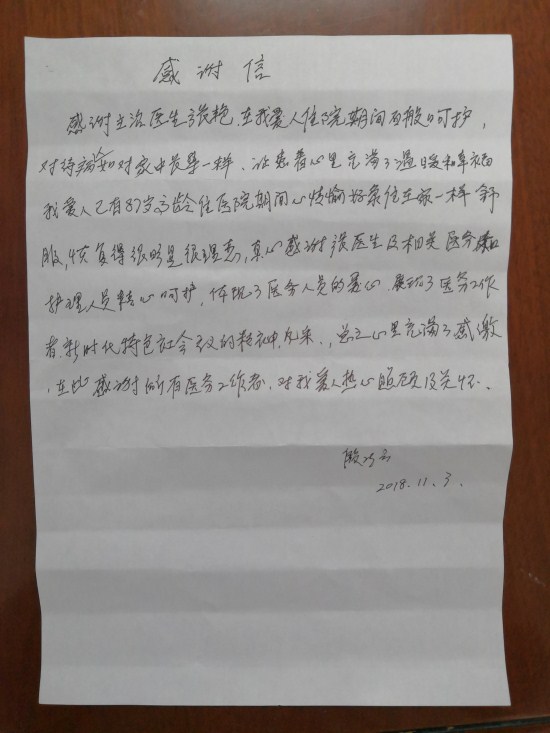 感谢信
感谢主治医生张艳,在我爱人住院期间百般呵护,
对待病人如对家中长辈一样.让患者心里充满了温暖和幸福
我爱人已有87岁高龄住医院期间心情愉好象住在家一样舒
服,恢复得很明显很理想,真心感谢张医生及相关医务和
护理人员精心呵护,体现了医务人员的爱心.展现了医务工作
者新时代特色社会主义的精神风采.,总之心里充满了感激
.在此感谢所有医务工作者.对我爱人热心照顾及关怀.
2018.11.3.